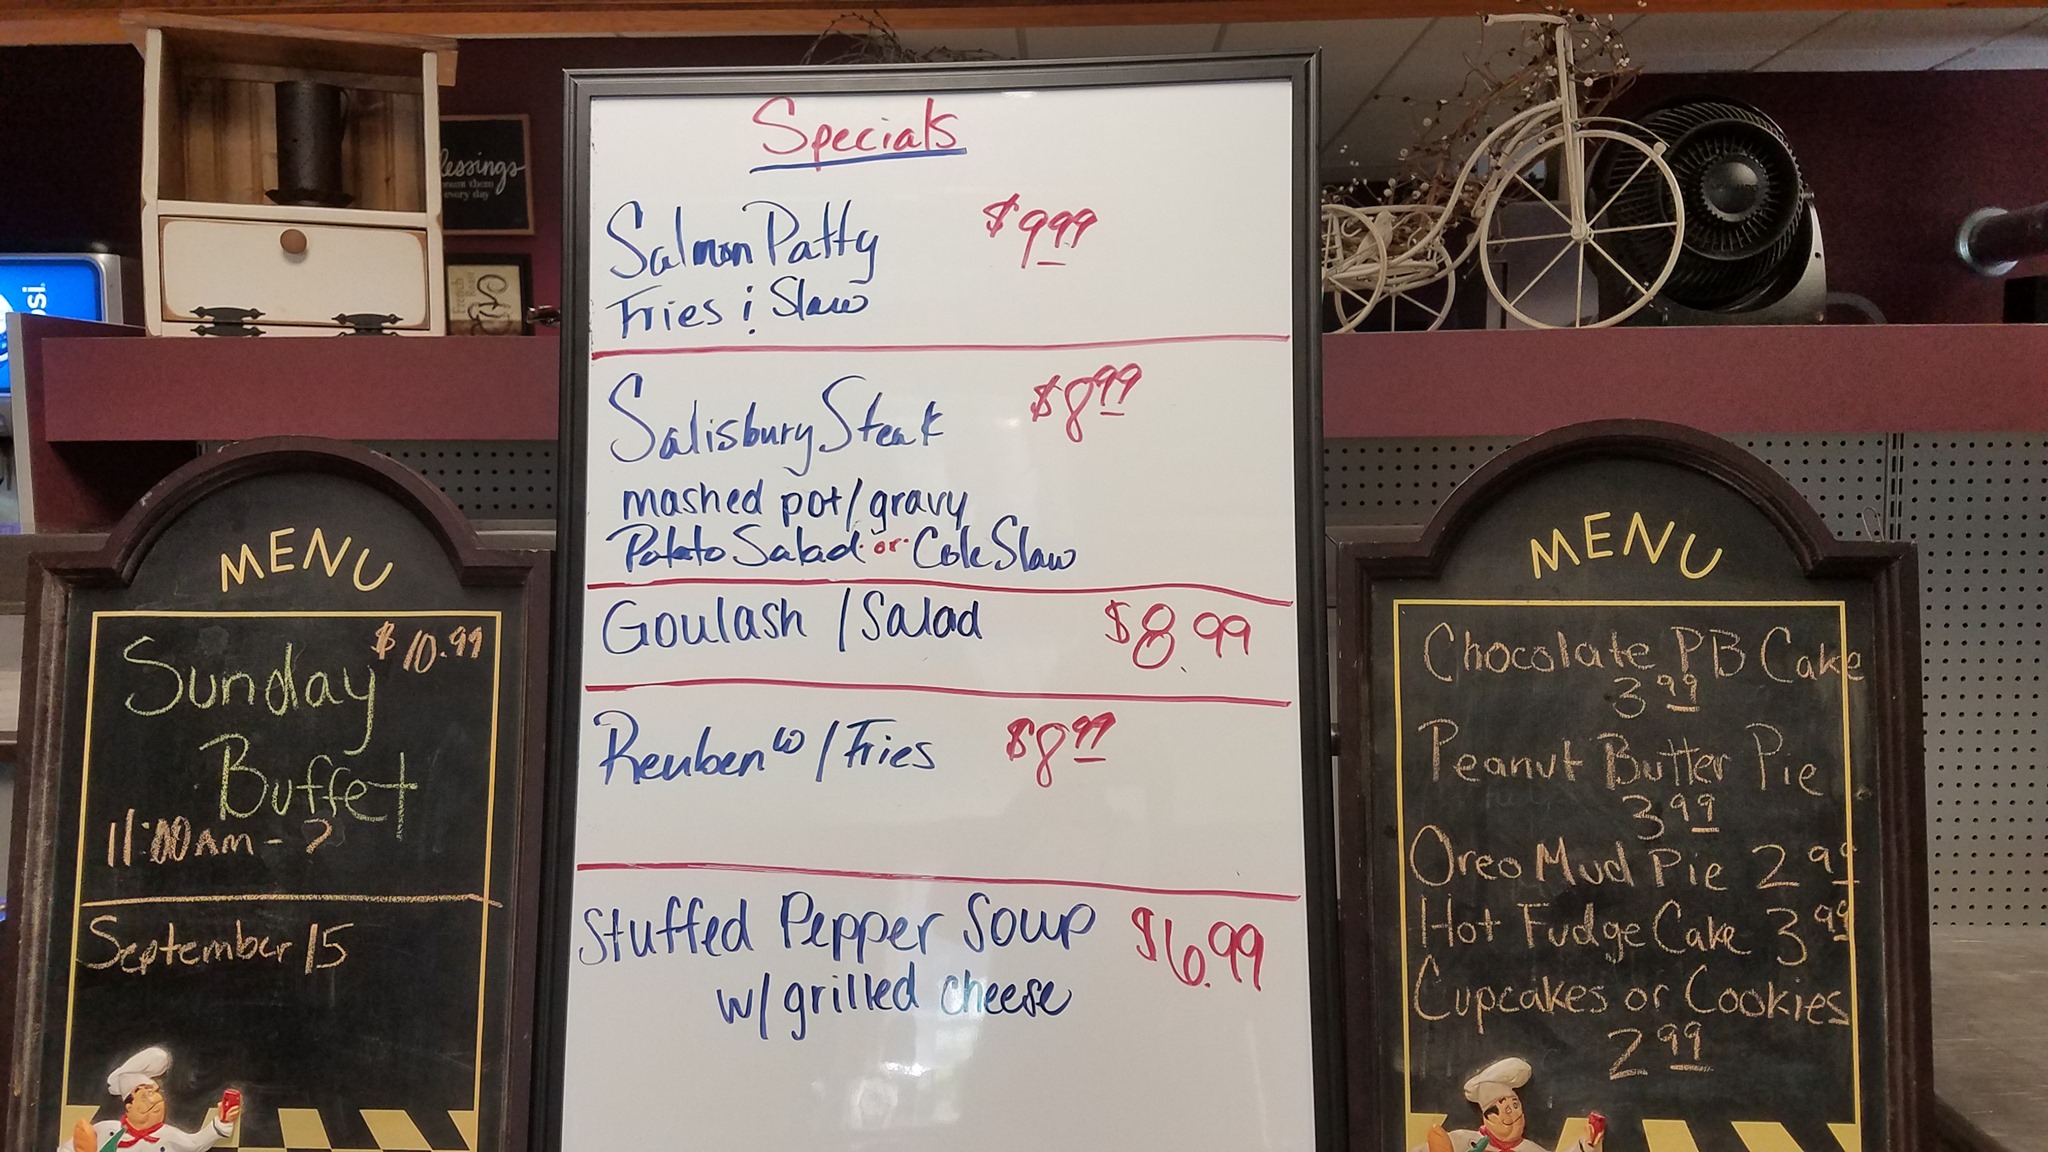 Specials
Salmon Patty $9.99
Fries & Slaw
Salisbury Steak $8.99
mashed pot/gravy
Potato Salad or Cole Slaw
Goulash / Salad $8.99
Reuben w/Fries $8.99
Stuffed Pepper Soup $6.99
w/ grilled cheese
MENU
$10.99
Sunday
Buffet
11:00AM - ?
September 15
MENU
Chocolate PB Cake
3.99
Peanut Butter Pie
3.99
Oreo Mud Pie 2.99
Hot Fudge Cake 3.99
Cupcakes or Cookies
2.99
lessings
every day
psi